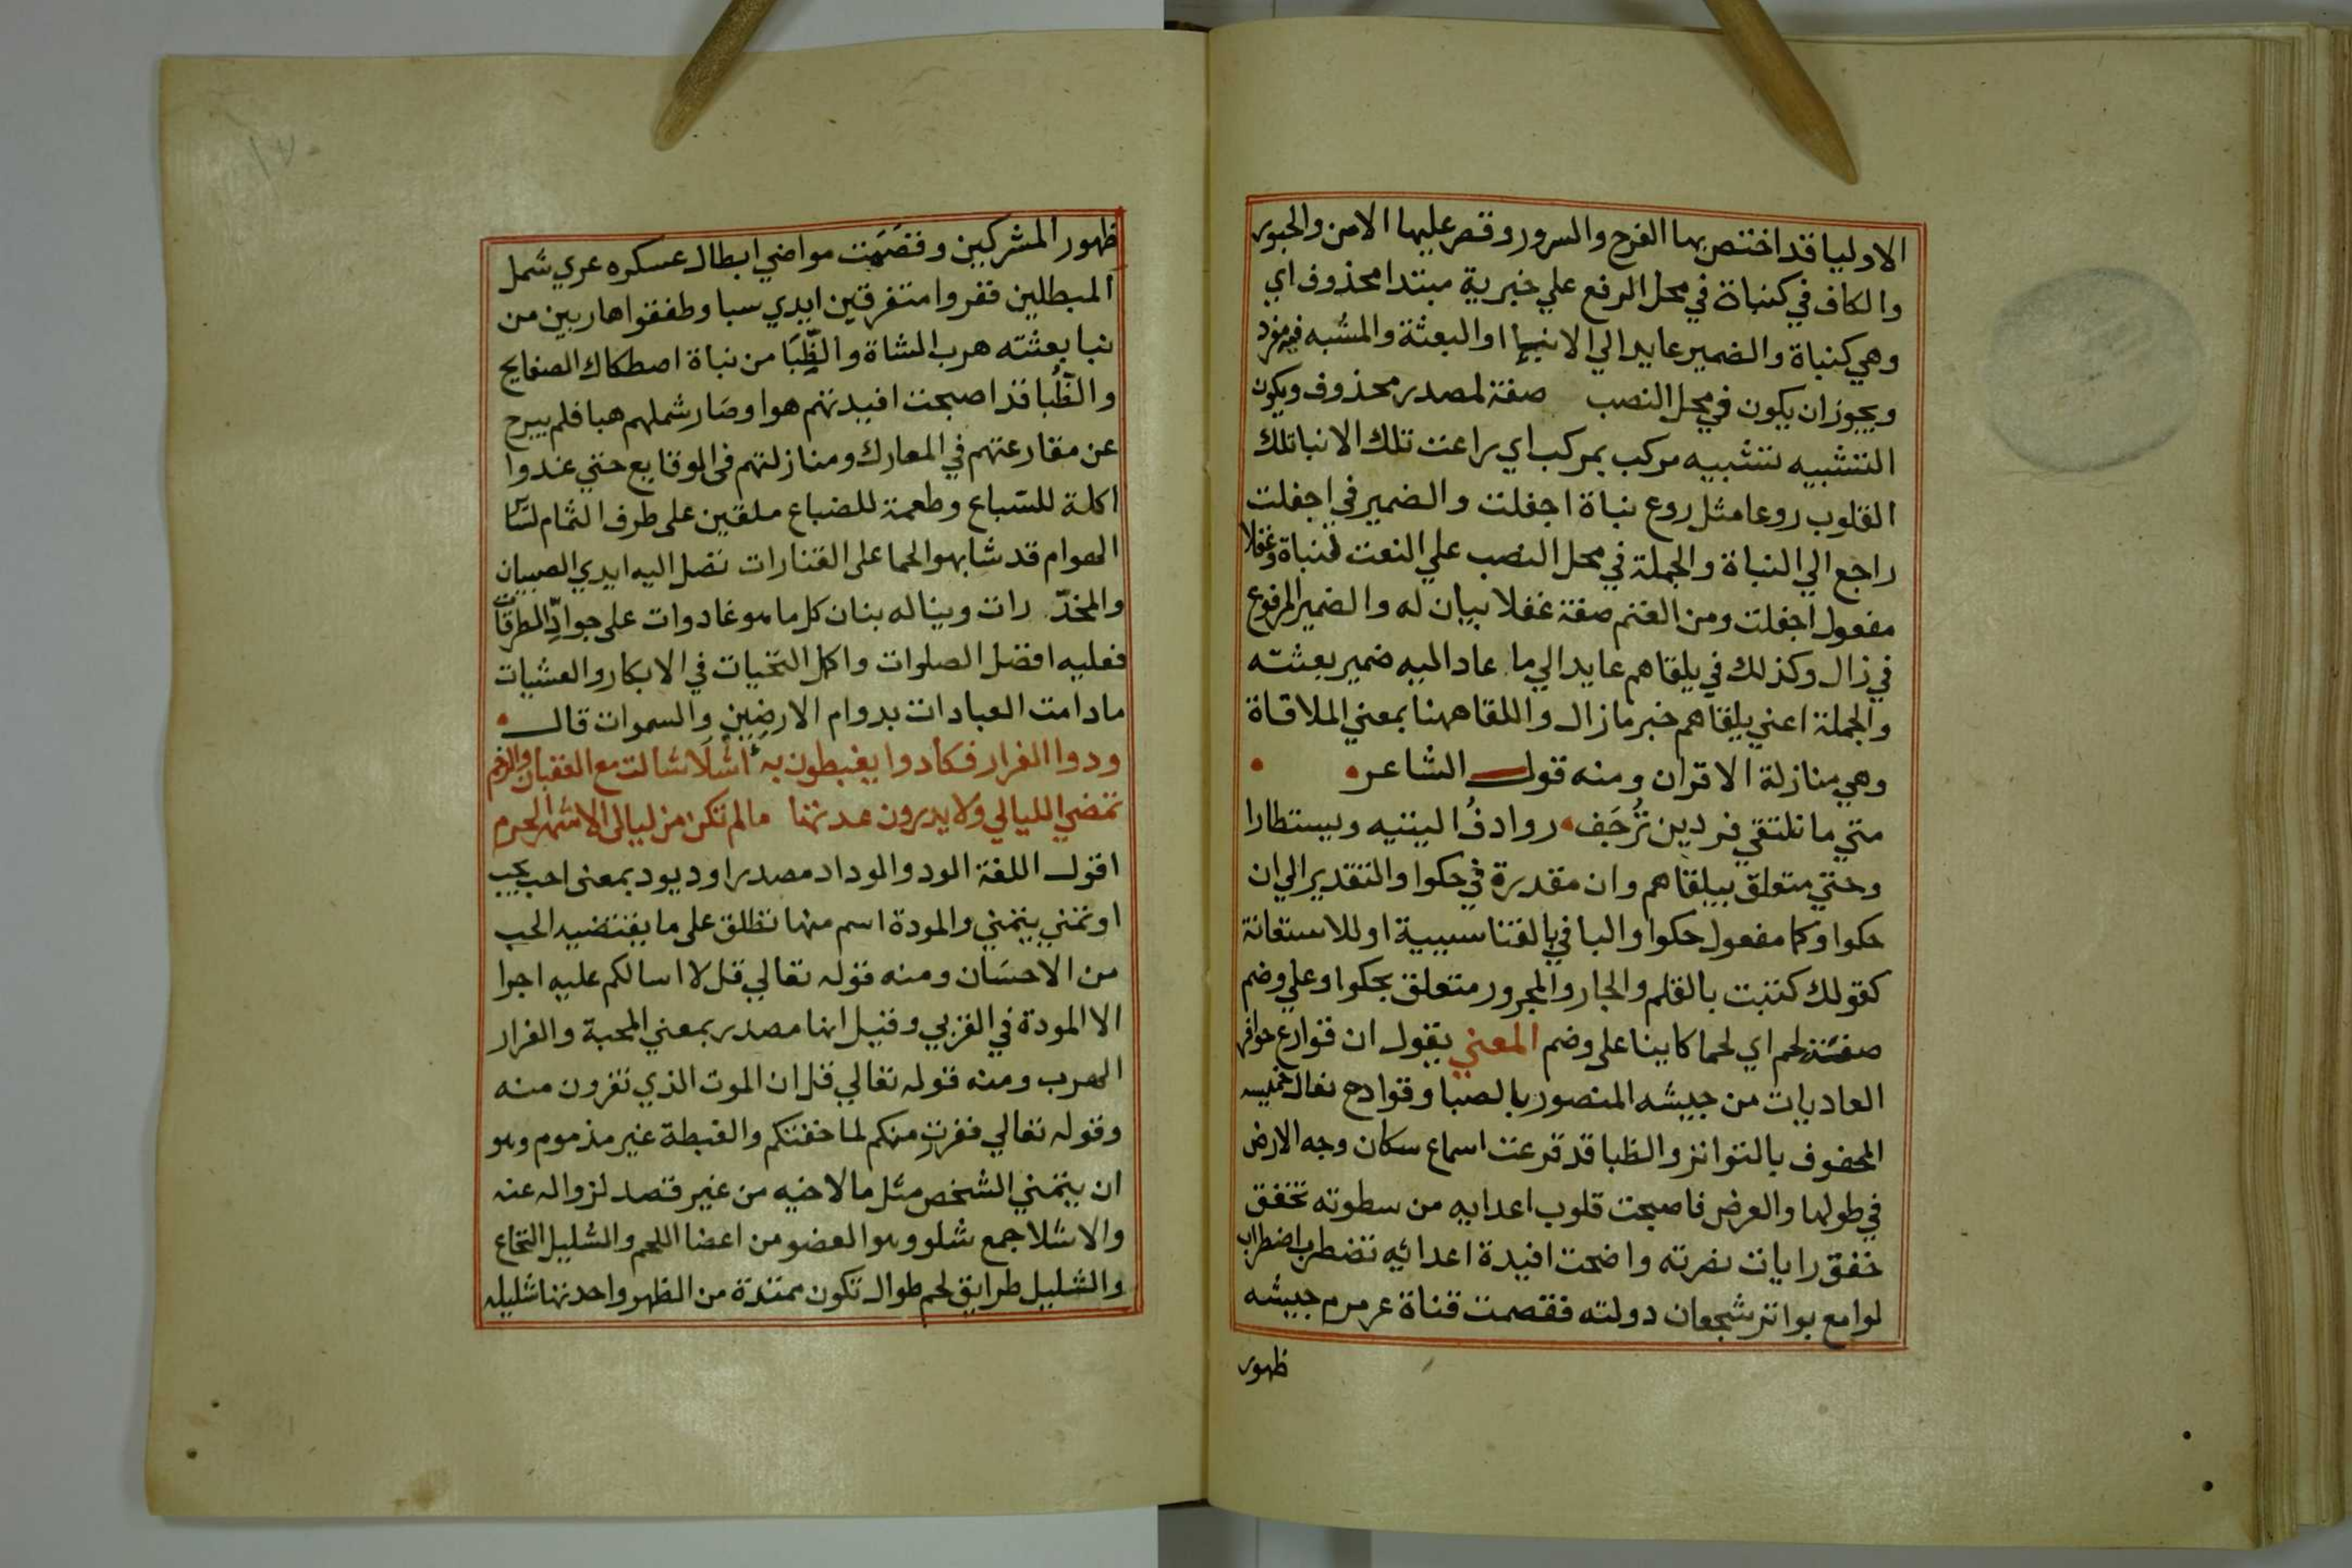 الاوليا قد اختص بها الفرح والسرور وقصر عليها الامن والحبور
والكاف في كنباة في محل الرفع علي خبرية مبتدا محذوف اي
وهي كنباة والضمير عايد الي الانبيا او البعثة والمشبه فيه مفرد
ويجوز ان يكون في محل النصب صفة لمصدر محذوف ويكون
التشبيه تشبيه مركب بمركب اي راعت تلك الانبا تلك
القلوب روعا مثل روع نباة اجفلت والضمير في اجفلت
راجع الي النباة والجملة في محل النصب علي النعت لنباة وغفلا
مفعول اجفلت ومن الغنم صفة غفلا بيان له والضمير المرفوع
في زال وكذلك في يلقاهم عايد الي ما عاد اليه ضمير بعثته
والجملة اعني يلقاهم خبر ما زال واللقا ههنا بمعني الملاقاة
وهي منازلة الاقران ومنه قول الشاعر
متي ما نلتقي فردين تُرْجَف روادفُ اليتيه ويستطارا
وحتي متعلق بيلقاهم وان مقدرة في حكوا والتقدير الي ان
حكوا وكما مفعول حكوا والبا في بالقنا سببية او للاستعانة
كقولك كتبت بالقلم والجار والمجرور متعلق بحكوا وعلي وضم
صفة لحم اي لحما كاينا على وضم المعني يقول ان قوارع حوافر
العاديات من جيشه المنصور بالصبا وقوادح نعال خميسه
المحفوف بالتواتر والظبا قد قرعت اسماع سكان وجه الارض
في طولها والعرض فاصبحت قلوب اعدايه من سطوته تخفق
خفق رايات نصرته واضحت افيدة اعدائه تضطرب اضطراب
لوامع بواتر شجعان دولته فقصمت قناة عرمرم جيشه
ظهور
ظهور المشركين وفصَمَت مواضي ابطال عسكره عري شمل
المبطلين ففروا متفرقين ايدي سبا وطفقوا هاربين من
نبا بعثته هرب الشاة والظِّبَا من نباة اصطكاك الصفايح
والظُّبا قد اصبحت افيدتهم هوا وصار شملهم هبا فلم يبرح
عن مقارعتهم في المعارك ومنازلتهم في الوقايع حتي غدوا
اكلة للسباع وطعمة للضباع ملقين على طرف الثمام لسا
الهوام قد شابهوا لحما على القنارات تصل اليه ايدي الصبيان
والمخدّرات ويناله بنان كل ما هو غاد وات على جوادّ الطرقات
فعليه افضل الصلوات واكمل التحيات في الابكار والعشيات
ما دامت العبادات بدوام الارضين والسموات قال
ودوا الفرار فكادوا يغبطون به اشلا شالت مع العقبان والرخم
تمضي الليالي ولا يدرون عدتها ما لم تكن من ليالى الاشهر الحرم
اقول اللغة الود والوداد مصدرا ود يود بمعنى احب يحب
او تمني يتمني والمودة اسم منها تطلق على ما يقتضيه الحب
من الاحسان ومنه قوله تعالي قل لا اسالكم عليه اجرا
الا المودة في القربي وقيل انها مصدر بمعني المحبة والفرار
الهرب ومنه قوله تعالي قل ان الموت الذي تفرون منه
وقوله تعالي ففرت منكم لما خفتكم والغبطة غير مذموم وهو
ان يتمني الشخص مثل ما لاخيه من غير قصد لزواله عنه
والاشلا جمع شلو وهو العضو من اعضا اللحم والشليل النخاع
والشليل طرايق لحم طوال تكون ممتدة من الظهر واحدتها شليله